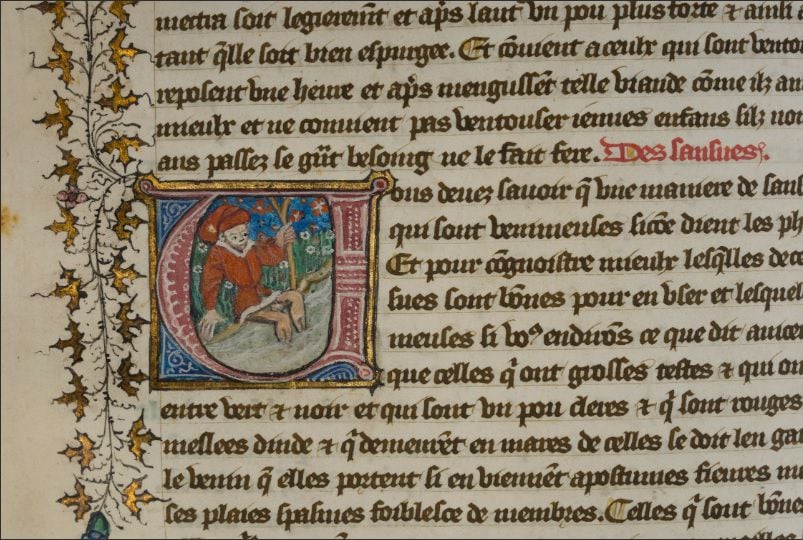 mettra soit legierem̄t et ap̄s laut vn pou plus forte ⁊ ainsi
tant q̄lle soit bien espurgee. Et cōuient a ceulx qui sont vento
reposent vne heure et ap̄s menguss̄ēt telle viande cōme ilz au
mieulx et ne conuient pas ventouser ieunes enfans silz non
ans passez se gñt besoing ne le fait fere. Des sansues.
Vous deuez sauoir q̄ vne maniere de sans
qui sont venimeuses sicōe dient les ph
Et pour cōgnoistre mieulx lesq̄lles de ce
sues sont bōnes pour en vser et lesquel
meuses si voꝰ endirōs ce que dit auice
que celles q̄ ont grosses testes ⁊ qui on
entre vert ⁊ noir et qui sont vn pou cleres ⁊ q̄ sont rouges
meslees dinde ⁊ q̄ demeurēt en mares de celles se doit len gar
le venin q̄ elles portent si en viennēt apostumes fieures
ses plaies spasmes foiblesce de membres. Celles q̄ sont bōne